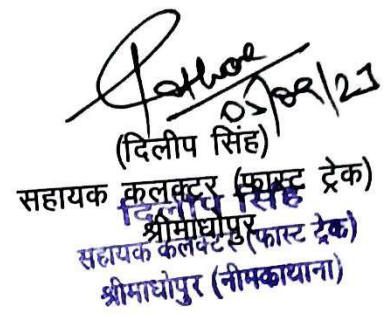 (दिलीप सिंह)
सहायक कलक्टर (फास्ट ट्रेक)
श्रीमाधोपुर
दिलीप सिंह
सहायक कलक्टर (फास्ट ट्रेक)
श्रीमाधोपुर (नीमकाथाना)